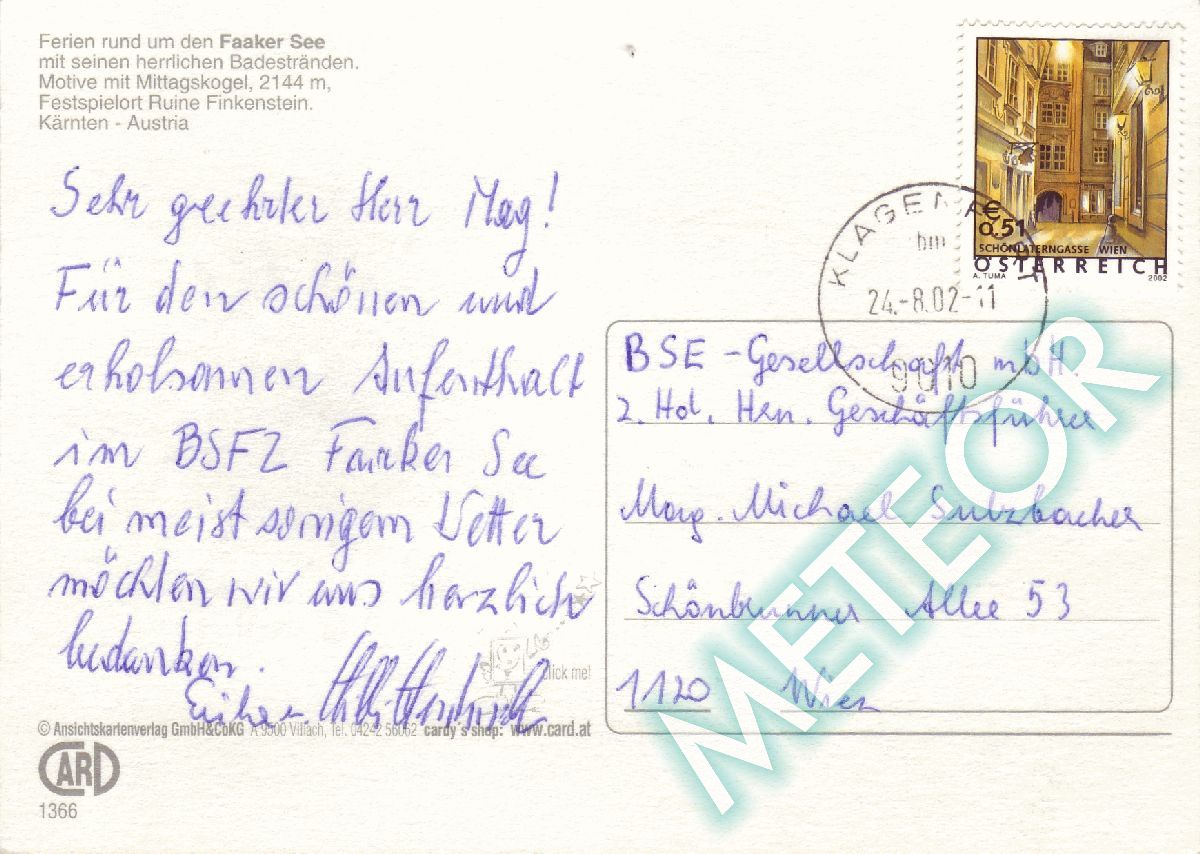 Ferien rund um den Faaker See
mit seinen herrlichen Badestränden.
Motive mit Mittagskogel, 2144 m,
Festspielort Ruine Finkenstein.
Kärnten - Austria
Sehr geehrter Herr Mag!
Für den schönen und
erholsamen Aufenthalt
im BSFZ Faaker See
bei meist sonigem Wetter
möchten wir uns herzlich
bedanken.
click me!
© Ansichtskartenverlag GmbH&CoKG A 9500 Villach, Tel. 04242 56062 cardy's shop: www.card.at
CARD
1366
€
0.51
SCHÖNLATERNGASSE WIEN
ÖSTERREICH
A. TUMA 2002
KLAGENFURT
24.-8.02-11
9010
BSE - Gesellschaft mbH.
z. Hd. Hrn. Geschäftsführer
Mag. Michael Sulzbacher
Schönbrunner Allee 53
1120 Wien
METEOR